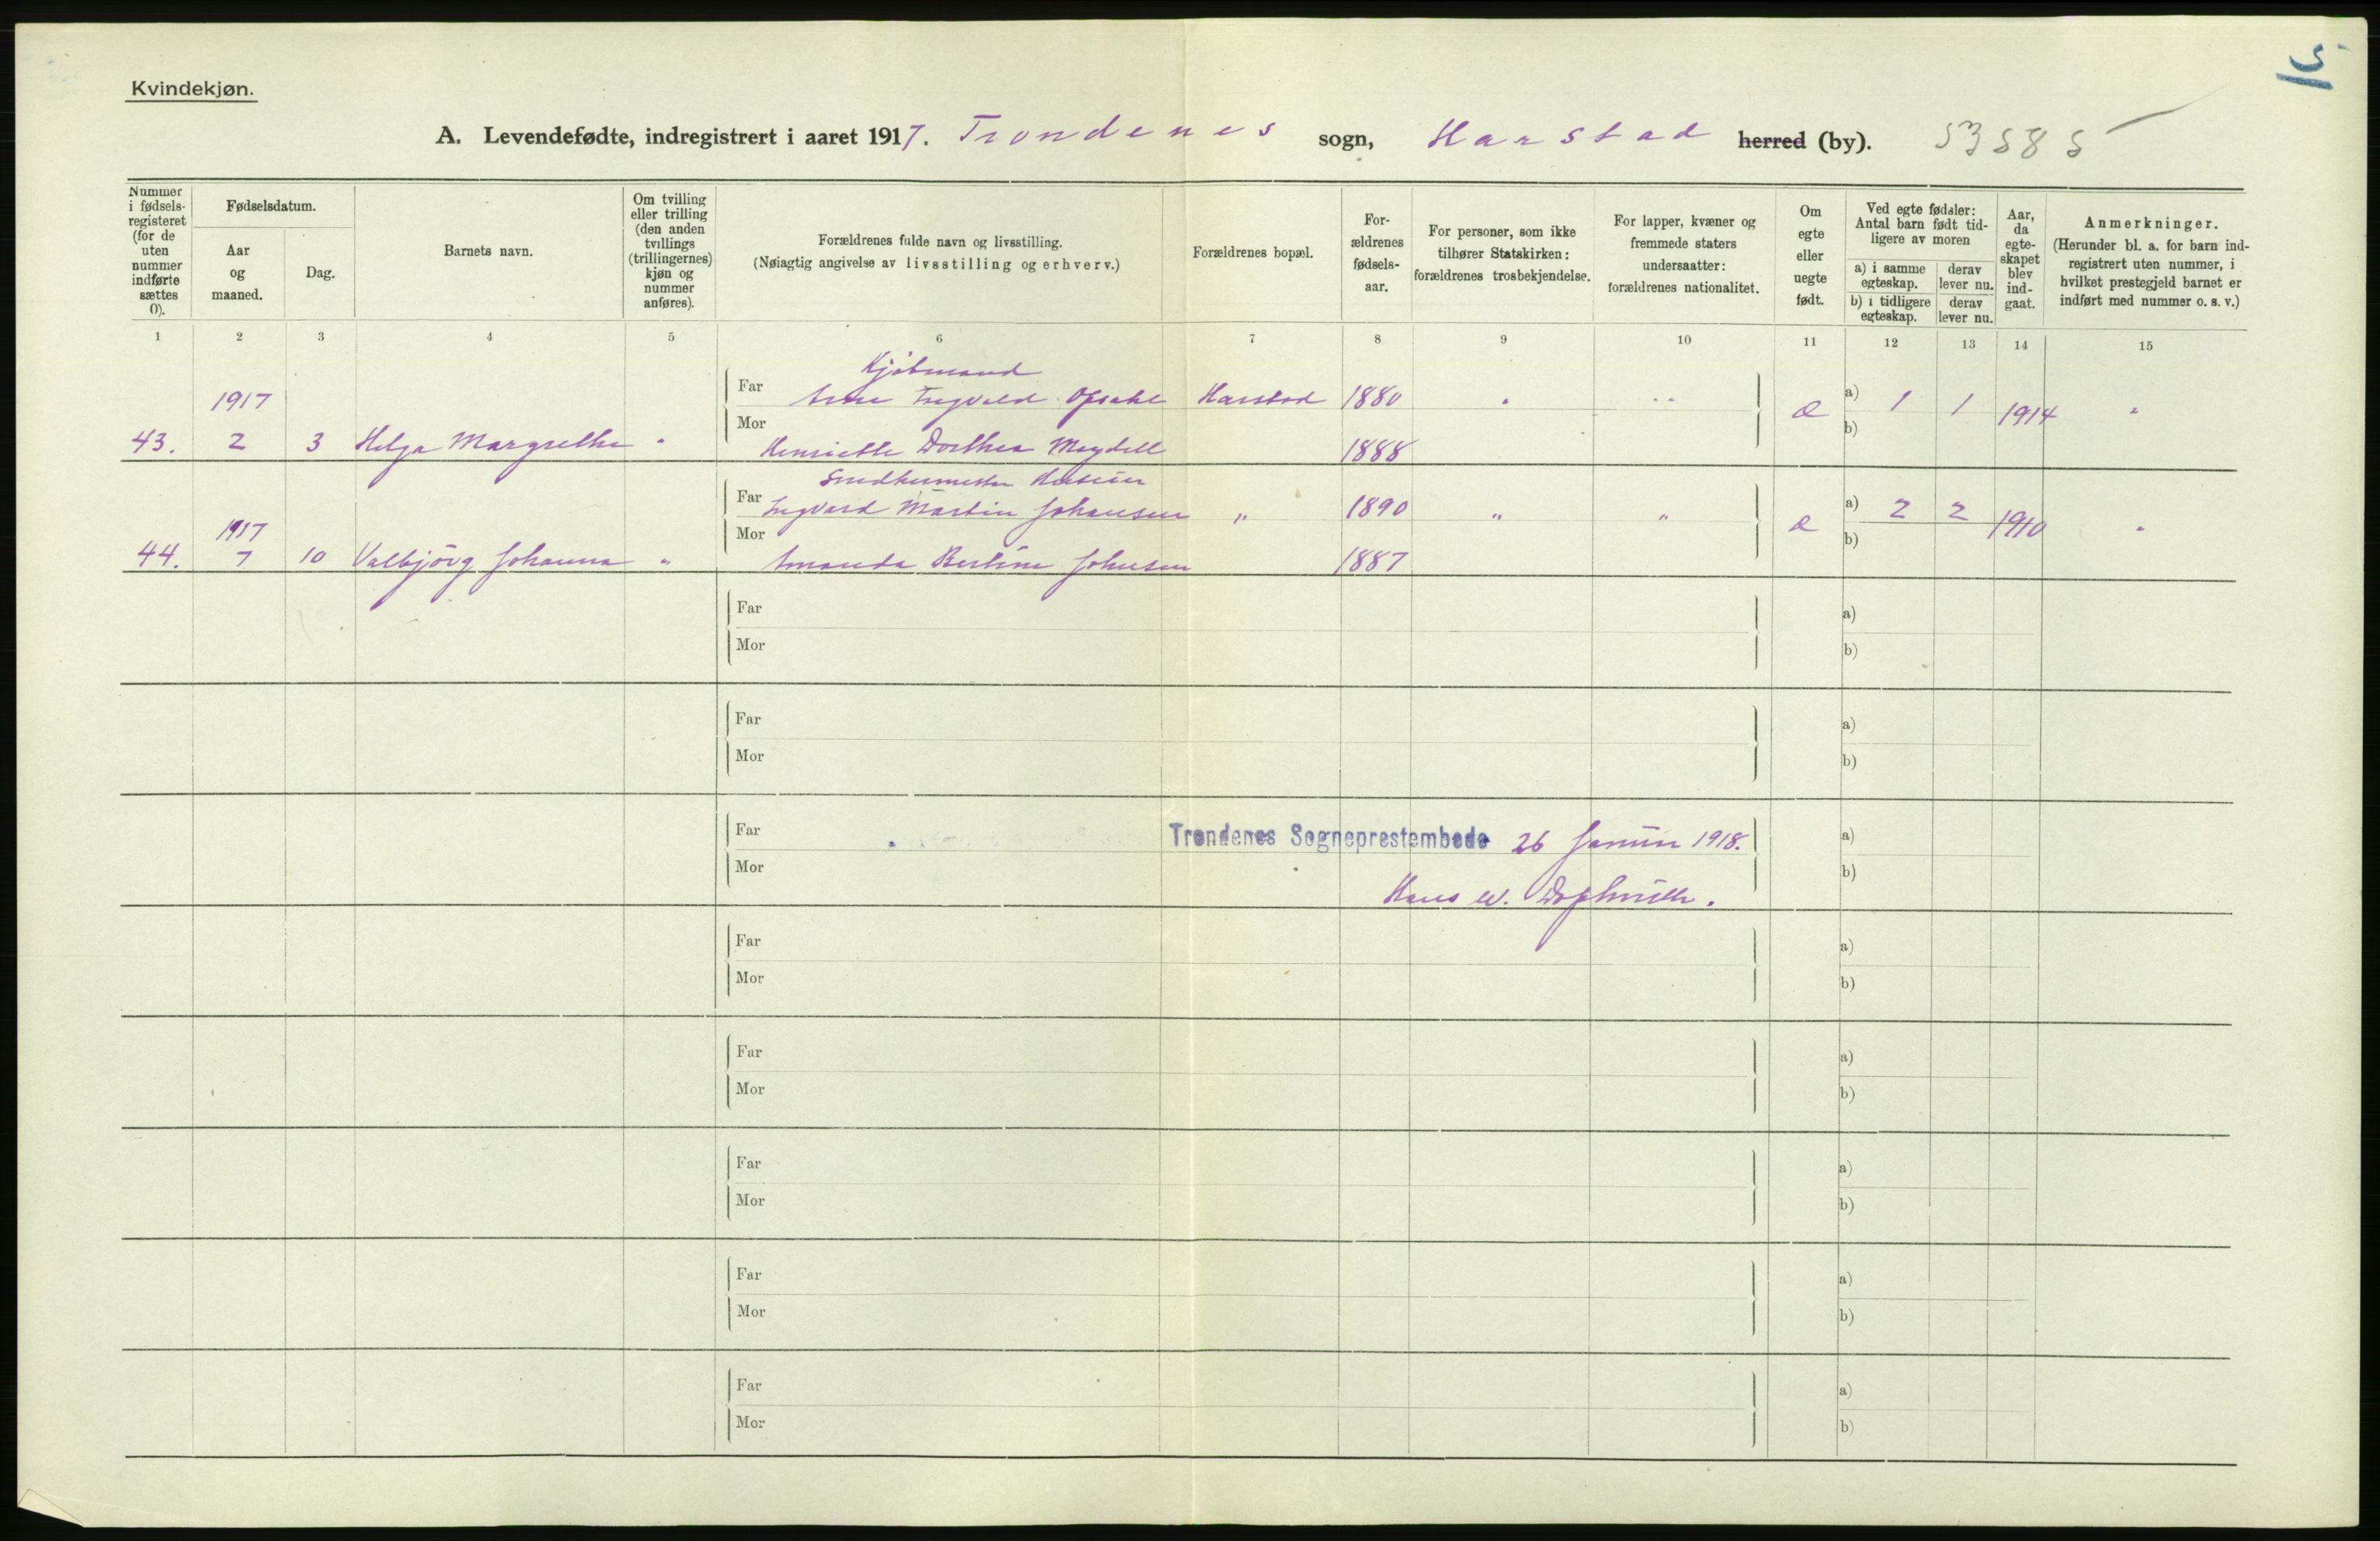 Kvindekjøn.
A. Levendefødte, indregistrert i aaret 1917. Trondenes sogn, Harstad herred (by). 53585
Nummer i fødselsregisteret (for de uten nummer indførte sættes 0).
Fødselsdatum.
Aar og maaned.
Dag.
Barnets navn.
Om tvilling eller trilling (den anden tvillings (trillingernes) kjøn og nummer anføres).
Forældrenes fulde navn og livsstilling.
(Nøiagtig angivelse av livsstilling og erhverv.)
Forældrenes bopæl.
Forældrenes fødselsaar.
For personer, som ikke tilhører Statskirken: forældrenes trosbekjendelse.
For lapper, kvæner og fremmede staters undersaatter: forældrenes nationalitet.
Om egte eller uegte født.
Ved egte fødsler: Antal barn født tidligere av moren
a) i samme egteskap. derav lever nu.
b) i tidligere egteskap. derav lever nu.
Aar, da egteskapet blev indgaat.
Anmerkninger.
(Herunder bl. a. for barn indregistrert uten nummer, i hvilket prestegjeld barnet er indført med nummer o. s. v.)
1 2 3 4 5 6 7 8 9 10 11 12 13 14 15
Kjøbmand
1917 Far Arne Ingvald Opsahl Harstad 1880 " " e a) 1 1 1914 "
43. 2 3 Helga Margrethe " Mor Henriette Dorthea Meydell 1888 b)
Far Ingvard Martin Johansen " 1890 " " e a) 2 2 1910 "
1917
44. 7 10 Valbjörg Johanna " Mor Amanda Bertine Johnsen 1887 b)
Far a)
Mor b)
Far a)
Mor b)
Far Trondenes Sogneprestembede 26 Januar 1918. a)
Mor Hans W. b)
Far a)
Mor b)
Far a)
Mor b)
Far a)
Mor b)
Far a)
Mor b)
Far a)
Mor b)